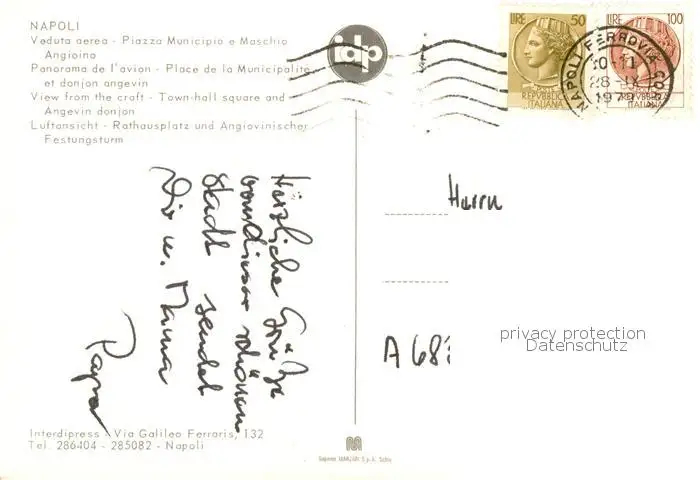 NAPOLI
Veduta aerea - Piazza Municipio e Maschio
Angioino
Panorama de l'avion - Place de la Municipalite
et donjon angevin
View from the craft - Town-hall square and
Angevin donjon
Luftansicht - Rathausplatz und Angiovinischer
Festungsturm
idp
LIRE 50
REPUBBLICA
ITALIANA
LIRE 100
REPUBBLICA
ITALIANA
NAPOLI FERROVIA
28
197
Herzliche Grüße
von dieser schönen
Stadt sendet
Dir u. Mama
Papa
Herrn
A 68
privacy protection
Datenschutz
Interdipress - Via Galileo Ferraris, 132
Tel. 286404 - 285082 - Napoli